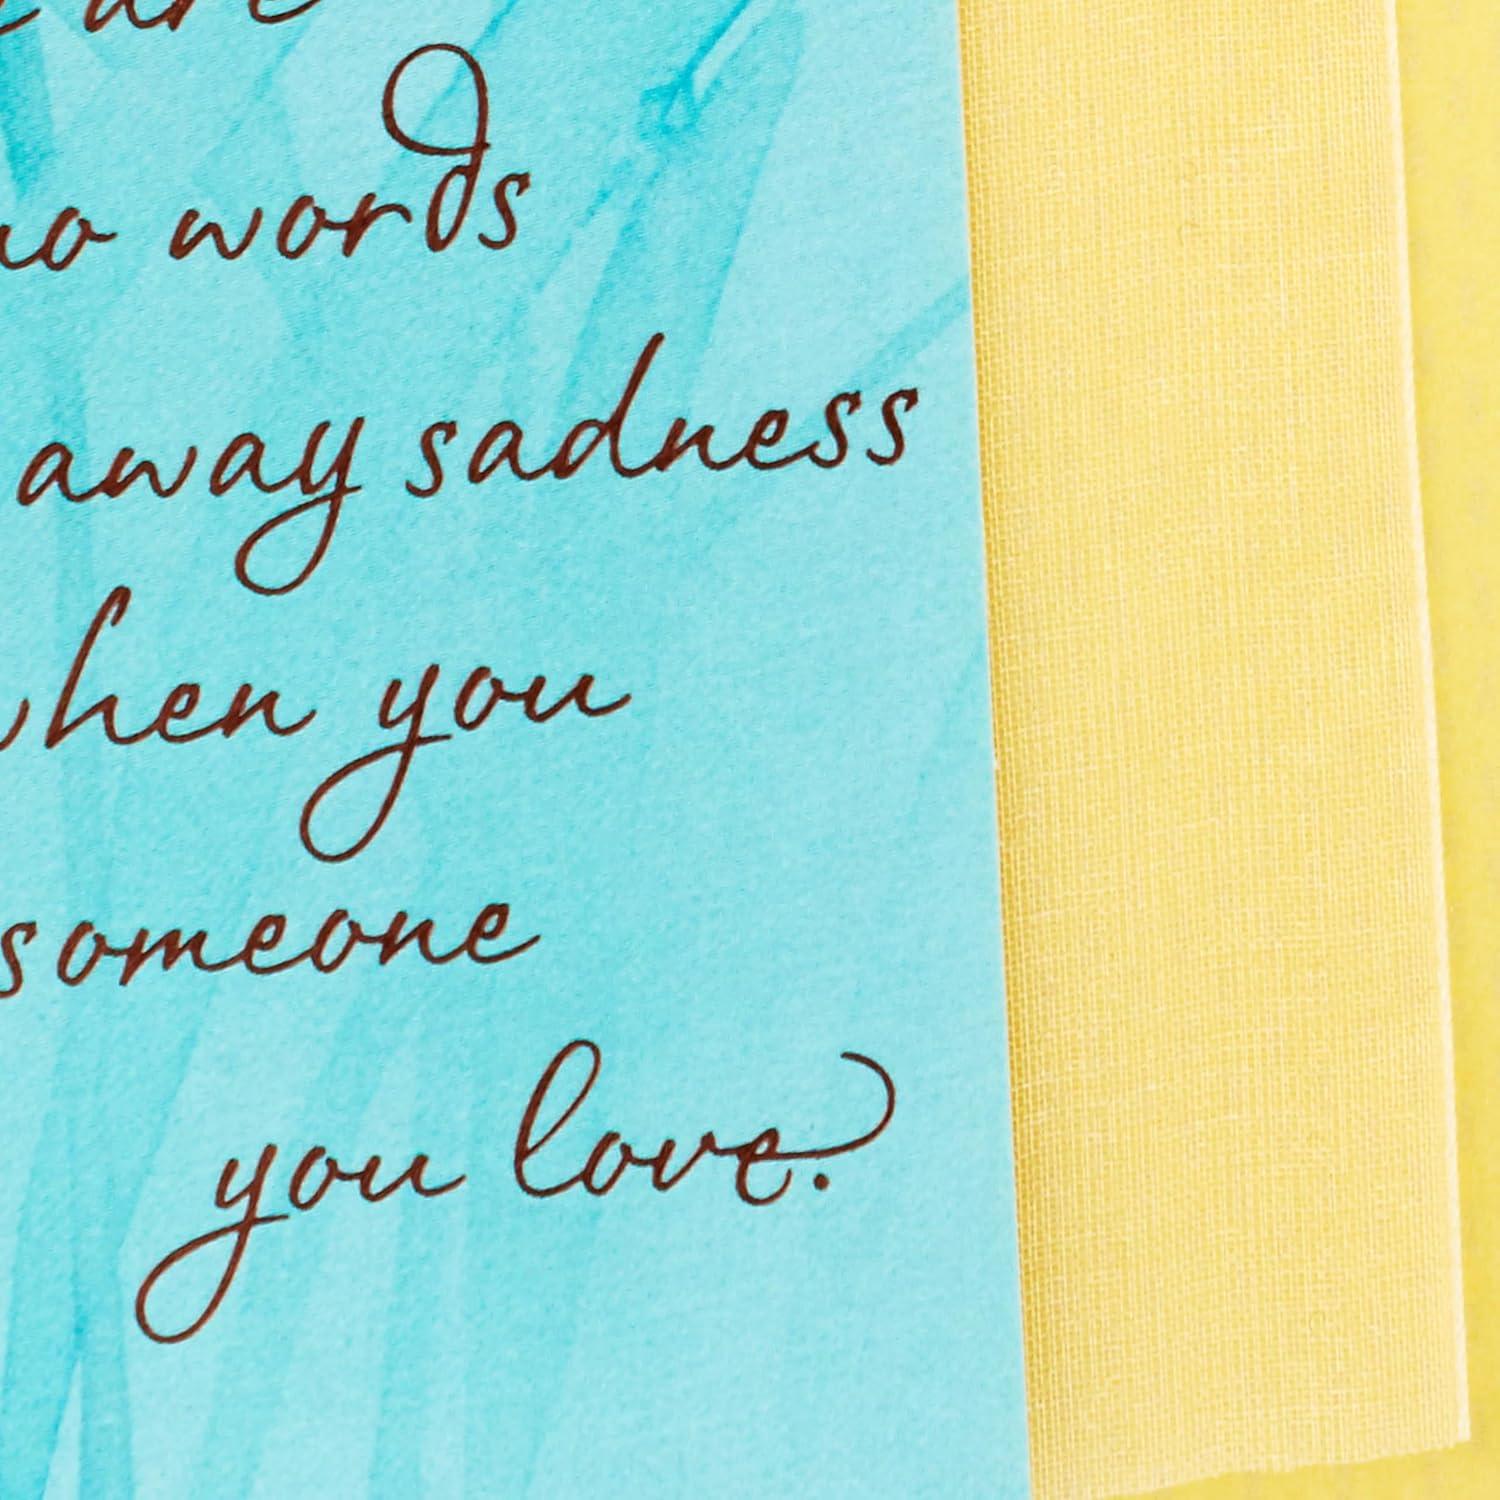 are
no words
away sadness
when you
someone
you love.